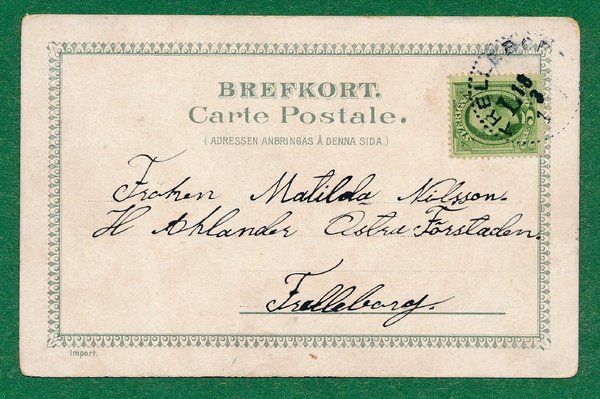 BREFKORT.
Carte Postale.
(ADRESSEN ANBRINGAS Å DENNA SIDA.)
TRELLEBORG
Fröken Matilda Nilsson.
H Ahlander Östra Förstaden.
Trelleborg.
Import.